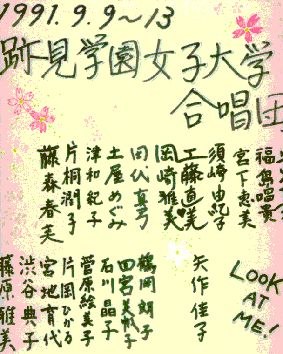 1991.9.9~13
跡見学園女子大学
合唱団
宮下恵美
須崎由紀子
工藤直美
岡崎雅美
田代真弓
土屋めぐみ
津和紀子
片桐潤子
藤森春美
LOOK
AT
ME!
矢作佳子
鶴岡朗子
田宮美帆子
石川晶子
菅原絵美子
片岡ひかる
宮地育代
渋谷典子
藤原雅美